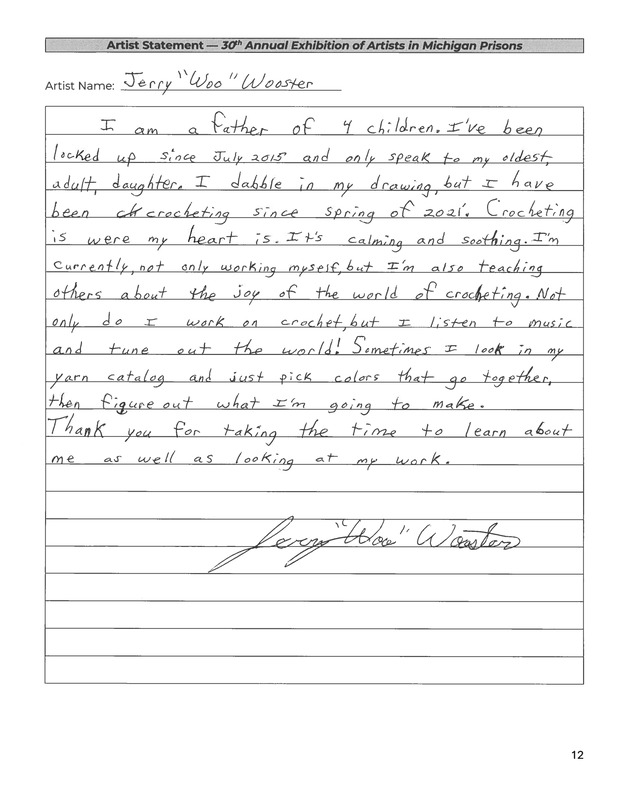 Artist Statement — 30th Annual Exhibition of Artists in Michigan Prisons
Artist Name: Jerry "Woo" Wooster
I am a father of 4 children. I've been
locked up since July 2015 and only speak to my oldest,
adult, daughter. I dabble in my drawing, but I have
been crocheting since spring of 2021. Crocheting
is were my heart is. It's calming and soothing. I'm
currently, not only working myself, but I'm also teaching
others about the joy of the world of crocheting. Not
only do I work on crochet, but I listen to music
and tune out the world! Sometimes I look in my
yarn catalog and just pick colors that go together,
then figure out what I'm going to make.
Thank you for taking the time to learn about
me as well as looking at my work.
Jerry "Woo" Wooster
12